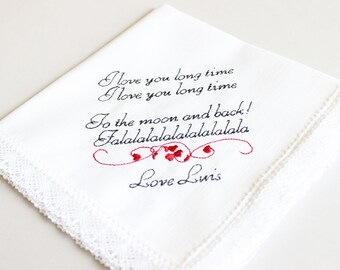 I love you long time
I love you long time
To the moon and back!
Falalalalalalalalalala
Love Luis